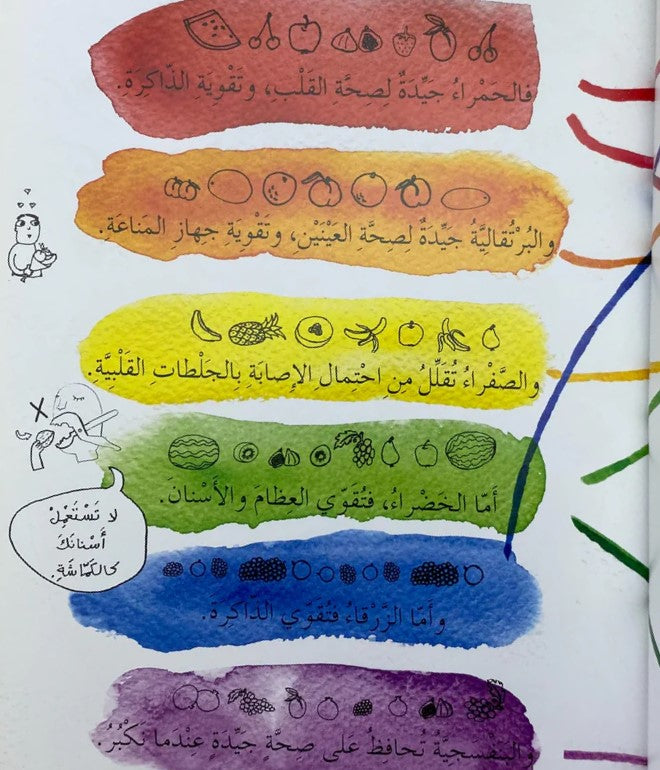 فالحَمْراءُ جَيِّدَةٌ لِصِحَّةِ القَلْبِ، وتَقْوِيَةِ الذّاكِرَةِ.
والبُرْتُقاليَّةُ جَيِّدَةٌ لِصِحَّةِ العَيْنَيْنِ، وتَقْوِيَةِ جِهازِ المَناعَةِ.
والصَّفْراءُ تُقَلِّلُ مِنِ احْتِمالِ الإصابَةِ بِالجَلْطاتِ القَلْبِيَّةِ.
أمّا الخَضْراءُ، فتُقَوّي العِظامَ والأَسْنانَ.
لا تَسْتَعْمِلْ
أَسْنانَكَ
كالكَمّاشَةِ.
وأمّا الزَّرْقاءُ فتُقَوّي الذّاكِرَةَ.
والبَنَفْسَجِيَّةُ تُحافِظُ عَلى صِحَّةٍ جَيِّدَةٍ عِنْدَما نَكْبُرُ.